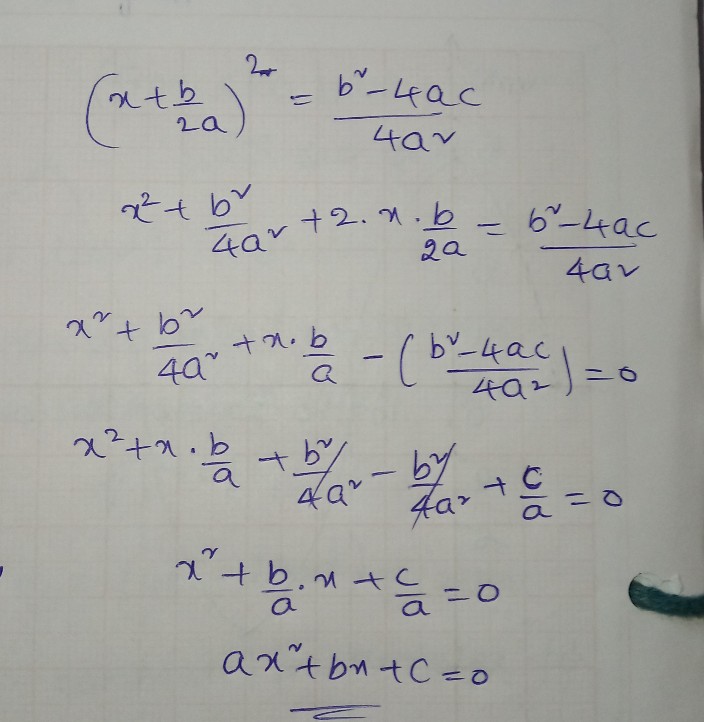 (x + b/2a)² = b² - 4ac / 4a²
x² + b²/4a² + 2. x . b/2a = b² - 4ac / 4a²
x² + b²/4a² + x. b/a - (b² - 4ac / 4a²) = 0
x² + x . b/a + b²/4a² - b²/4a² + c/a = 0
x² + b/a . x + c/a = 0
ax² + bx + c = 0